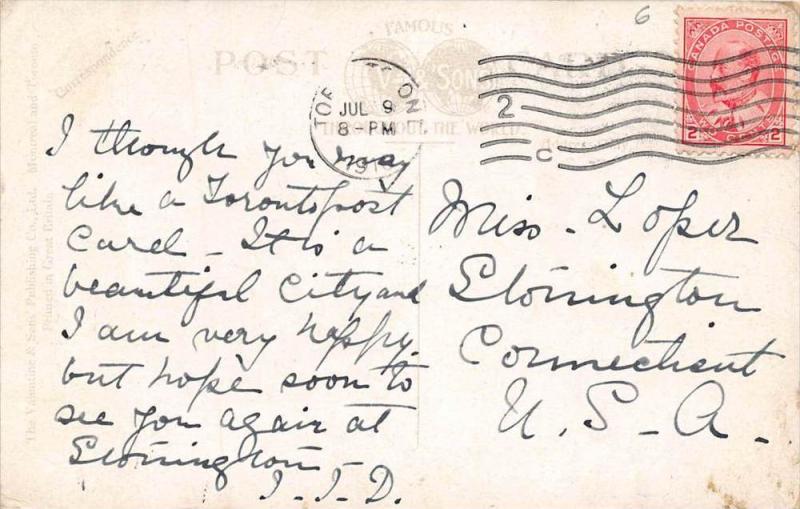 Correspondence.
FAMOUS
POST CARD
V & SONS
THROUGHOUT THE WORLD.
The Valentine & Sons' Publishing Co., Ltd. Montreal and Toronto
Printed in Great Britain
JUL 9
8 - PM
2
C
6
CANADA POSTAGE
2 TWO CENTS 2
I though you may
like a Toronto post
Card - It is a
beautiful City and
I am very happy
but hope soon to
see you again at
Stonington -
J. J. D.
Miss - Loper
Stonington
Connecticut
U. S - A -